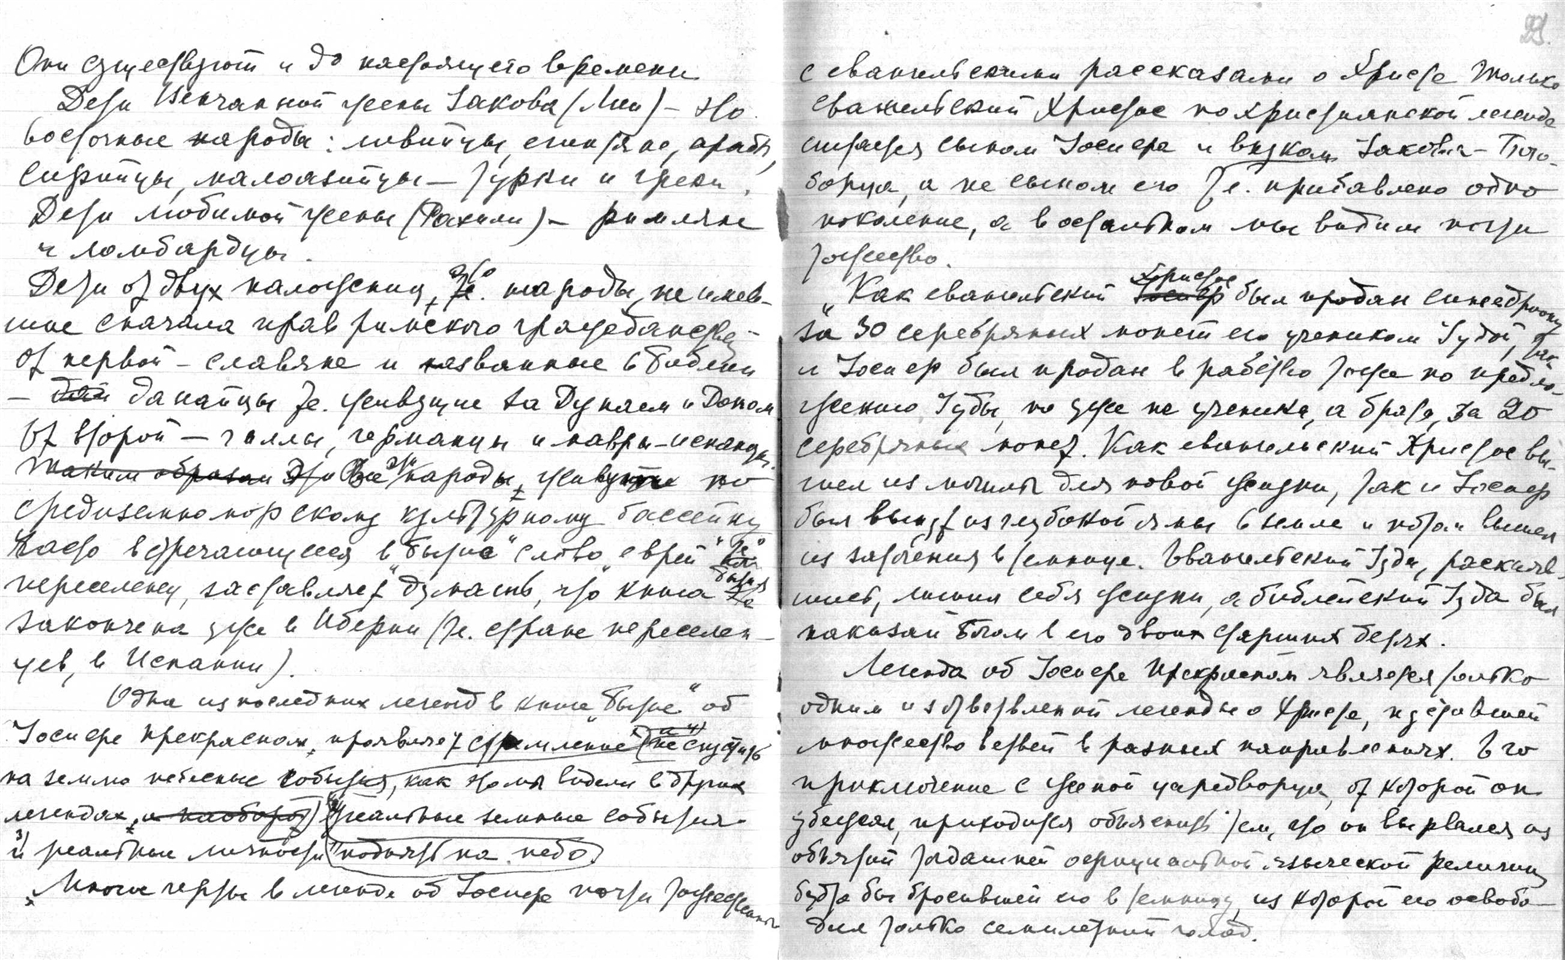 Они существуют и до настоящего времени
Дети Венчанной жены Iакова (Лии) – это
восточные народы: ливийцы, египтяне, арабы,
сирийцы, малоазийцы – турки и греки.
Дети любимой жены (Рахили) – римляне
и ломбардцы.
Дети от двух наложниц, т.е. народы, не имев-
шие сначала прав римского гражданства –
от первой – славяне и названные в библии
– данайцы т.е. живущие за Дунаем и Доном
от второй – галлы, германцы и мавры-испанцы.
Таким образом это Все эти народы, живущие по
средиземноморскому культурному бассейну
Часто встречающееся в "бытие" слово "еврей" т.е.
переселенец, заставляет думать, что книга бытия
закончена уже в Иберии (т.е. стране переселен-
цев, в Испании).
Одна из последних легенд в книге "бытие" об
Iосифе прекрасном, проявляет стремление не спустить
на землю небесные события, как это мы видели в других
легендах, и наоборот реальные земные события
и реальные личности поднять на небо
Многие черты в легенде об Iосифе почти тождественны
29.
с евангельскими рассказами о Христе только
евангельский Христос по христианской легенде
считается сыном Iосифа и внуком Iакова – Бого-
борца, а не сыном его т.е. прибавлено одно
поколение, а в остальном мы видим почти
тождество.
"Как евангельский Христос Iосиф был продан синедриону
за 30 серебряных монет его учеником Iудой, так
и Iосиф был продан в рабство тоже по предло-
жению Iуды, но уже не ученика, а брата, за 20
серебряных монет. Как евангельский Христос вы-
шел из могилы для новой жизни, так и Iосиф
был вынут из глубокой ямы в земле и потом вышел
из заточения в темнице. Евангельский Iуда, раскаяв-
шись, лишил себя жизни, а библейский Iуда был
наказан Богом в его двоих старших детях.
Легенда об Iосифе Прекрасном является только
одним из ответвлений легенды о Христе, пустившей
множество ветвей в разных направлениях. Его
приключение с женой царедворца, от которой он
убежал, приходится объяснить тем, что он вырвался из
объятий тогдашней официальной языческой религии
будто бы бросившей его в темницу, из которой его освобо-
дил только семилетний голод.